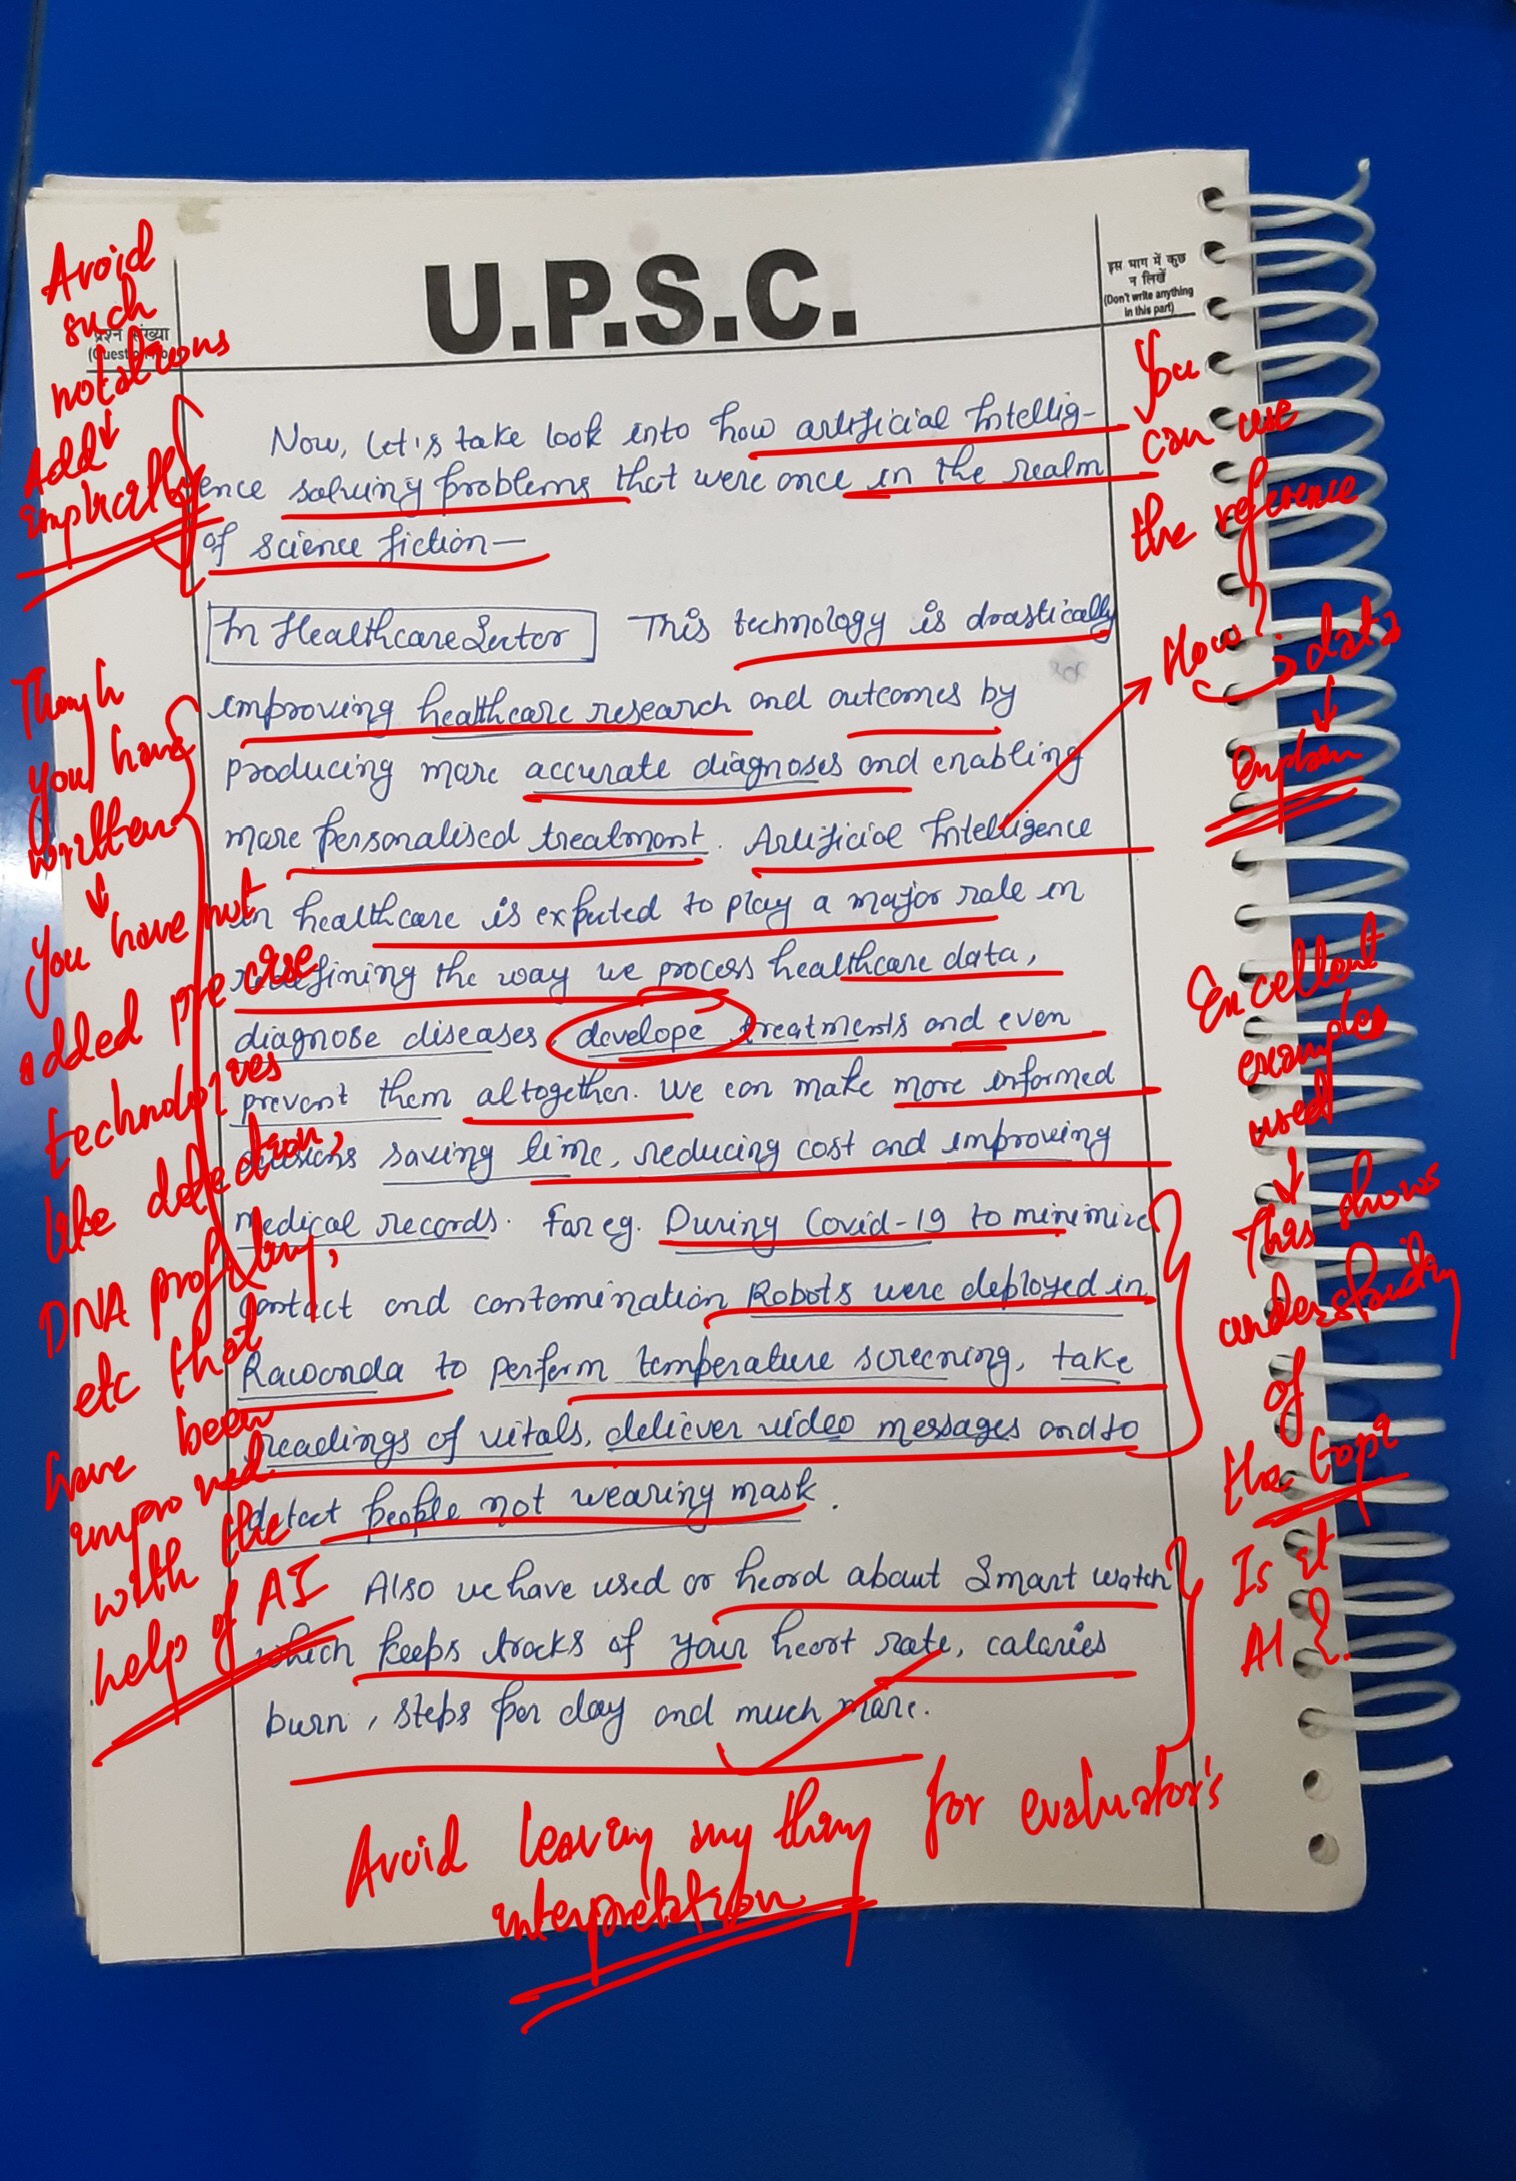 U.P.S.C.
प्रश्न संख्या
(Question No.
इस भाग में कुछ
न लिखें
(Don't write anything
in this part)
Now, let's take look into how artificial Intellig-
ence solving problems that were once in the realm
of science fiction—
In Healthcare Sector This technology is drastically
improving healthcare research and outcomes by
producing more accurate diagnoses and enabling
more personalised treatment. Artificial Intelligence
in healthcare is expected to play a major role in
redefining the way we process healthcare data,
diagnose diseases, develope treatments and even
prevent them altogether. We can make more informed
decisions saving time, reducing cost and improving
medical records. For eg. During Covid-19 to minimize
contact and contamination Robots were deployed in
Rawanda to perform temperature screening, take
readings of vitals, deliever video messages and to
detect people not wearing mask.
Also we have used or heard about Smart watch
which keeps tracks of your heart rate, calories
burn, steps per day and much more.
Avoid
such
notations
Add
implicitly
Though
you have
written
You have not
added precise
technologies
like detection,
DNA profiling,
etc that
have been
improved
with the
help of AI
You
can use
the reference
How?
data
Explain
Excellent
examples
used
This shows
understanding
of
the topic
Is it
AI?
Avoid leaving anything for evaluator's
interpretation